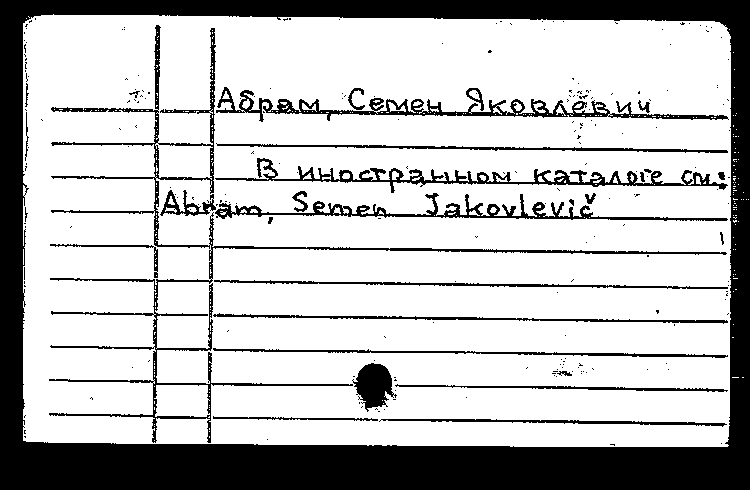 Абрам, Семен Яковлевич
В иностранном каталоге см.:
Abram, Semen Jakovlevič